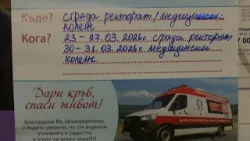 Къде? сграда ректорат/медицински
колеж
Кога? 23 - 27.03.2026г. сграда ректорат
30 - 31.03.2026г. медицински
колеж
Дари кръв,
спаси живот!
Благодарим Ви, кръводарители,
и бъдете уверени, че сте върнали
усмивката и радостта